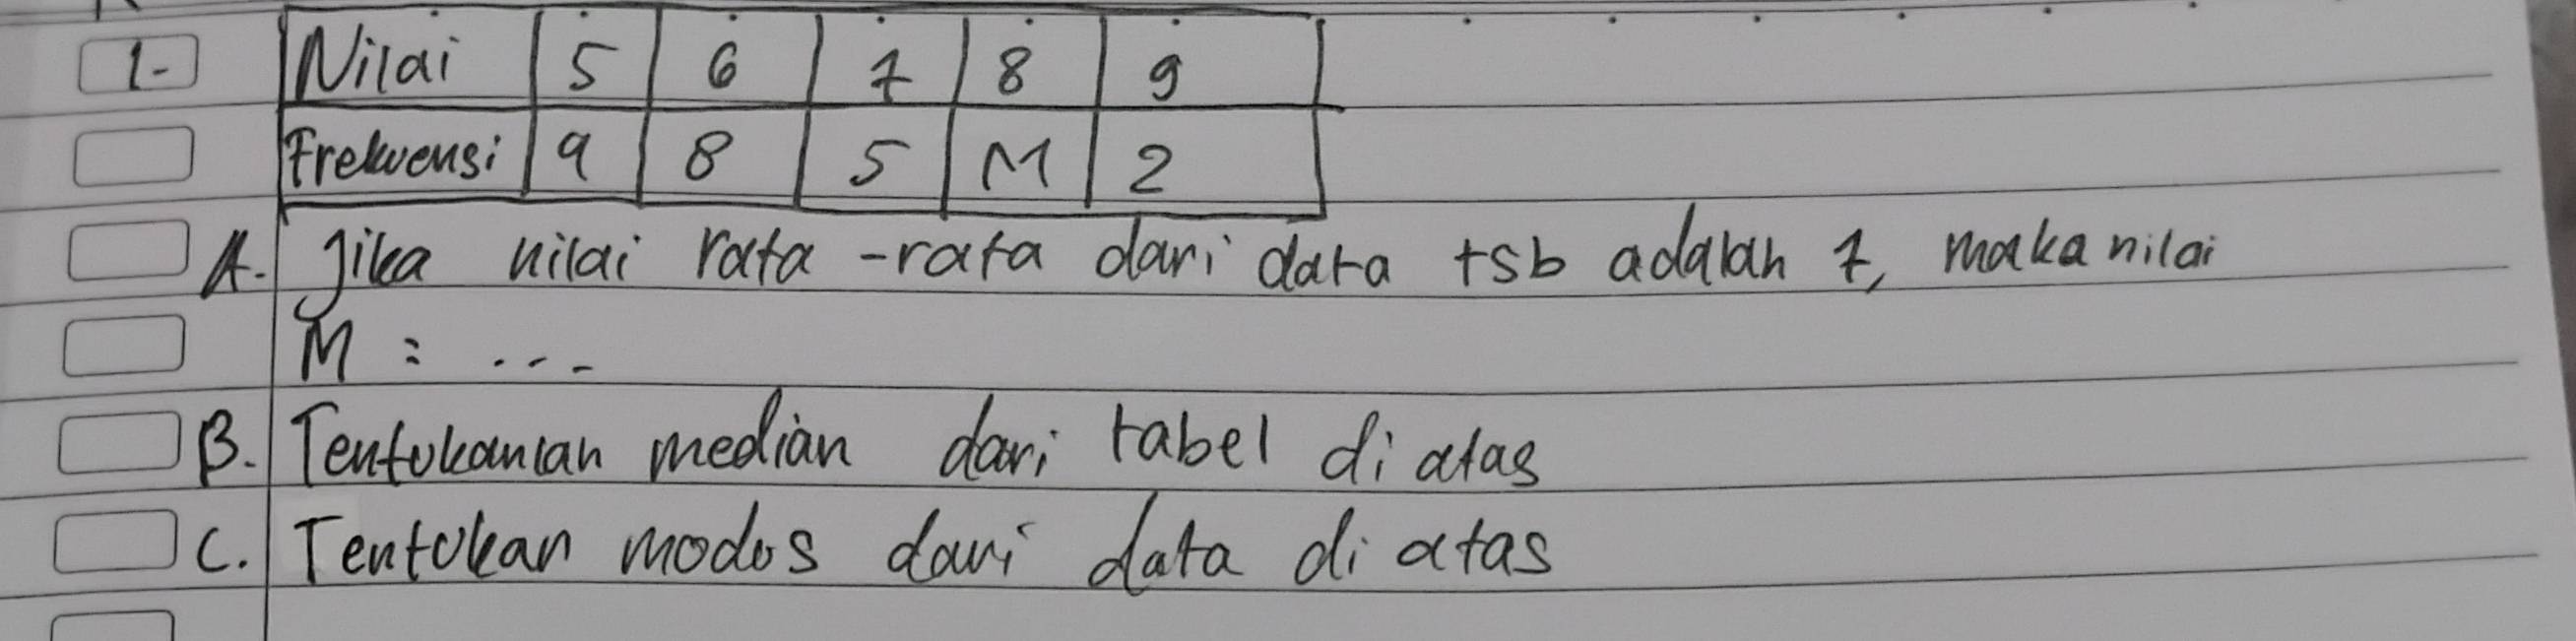 1- Nilai 5 6 7 8 9
Frekuensi 9 8 5 M 2
A. Jika nilai rata-rata dari data tsb adalah 7, maka nilai
M = ...
B. Tentukanlah median dari tabel di atas
C. Tentukan modus dari data di atas